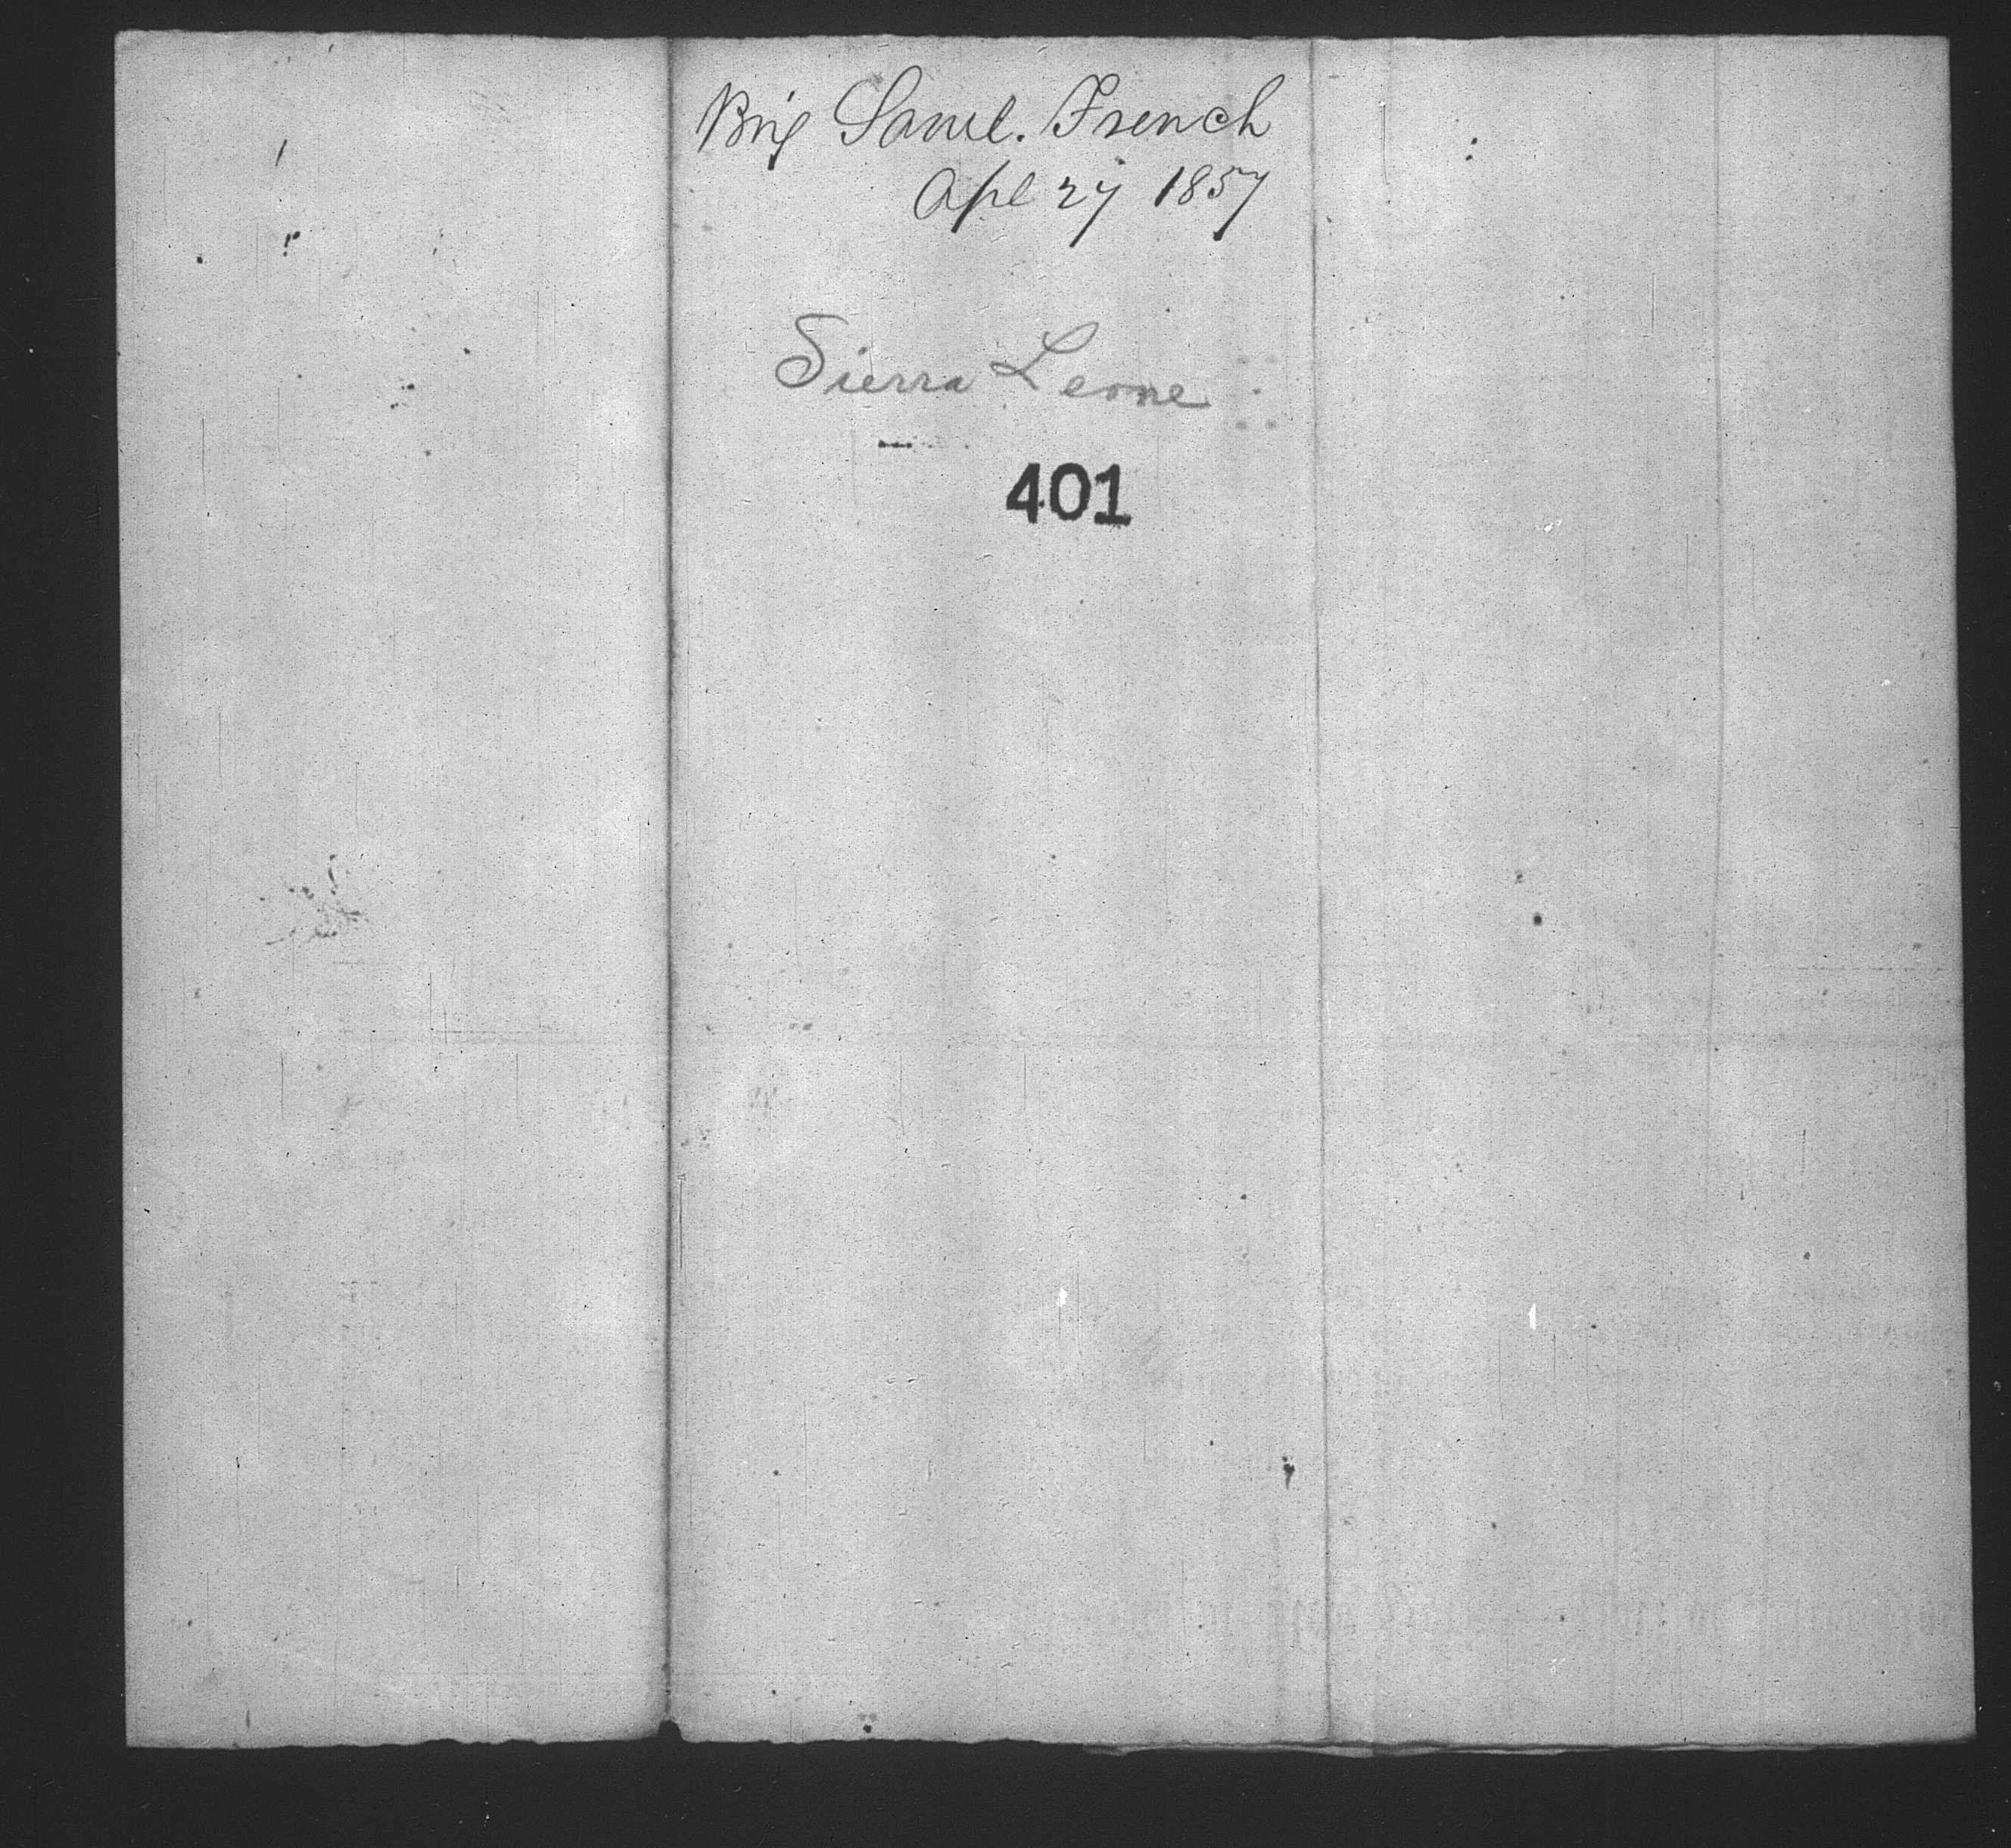 Brig Saml. French
Apl 27 1857
Sierra Leone
401